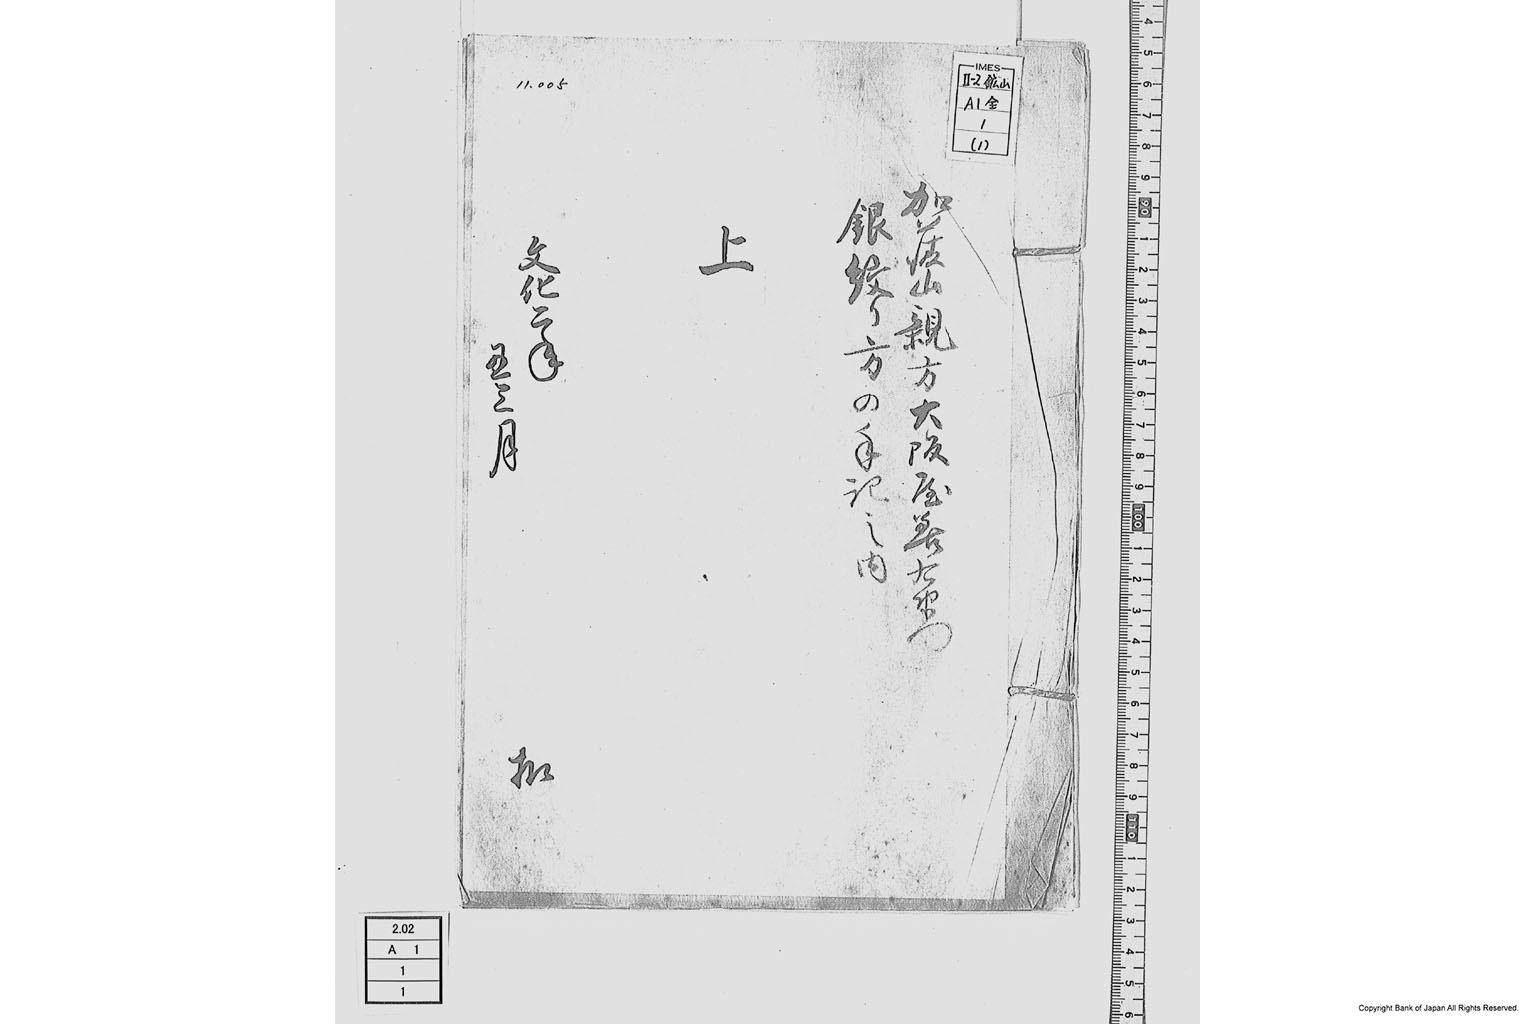 11.005
IMES
II-2 鉱山
A1 金
1
(1)
加護山親方大阪屋善右衛門
銀絞り方の手記之内
上
文化二年
丑三月
2.02
A 1
1
1
Copyright Bank of Japan All Rights Reserved.